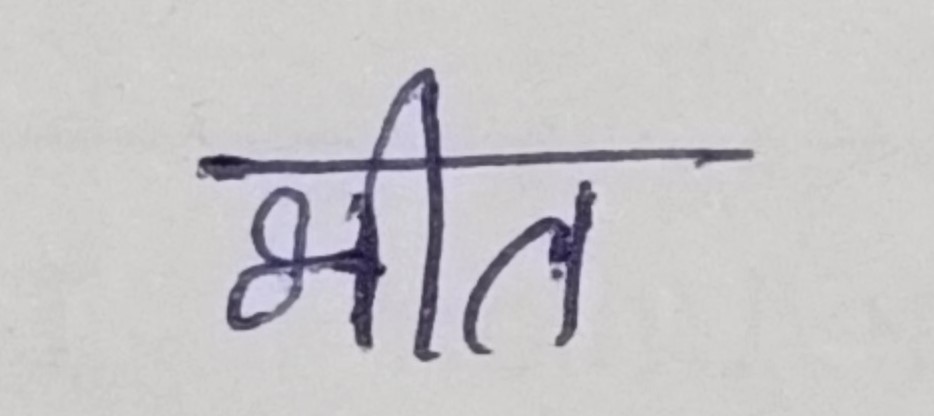 भीत